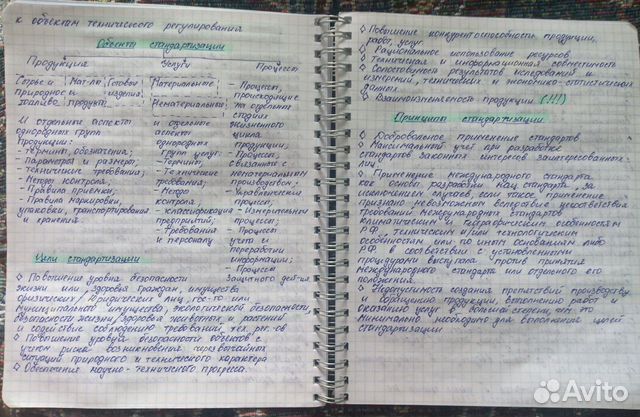 к объектам технического регулирования
Объекты стандартизации
Продукция Услуги Процессы
Сырье и Мат-лы Готовые Материальные Процессы,
природное и изделия происходящие
топливо продукты Нематериальные на отдельных
стадиях
И отдельные аспекты и отдельные жизненного
однородных групп аспекты цикла
Продукции: однородных продукции;
- термины, обозначения; групп услуг: - Процессы,
- Параметры и размеры; - Термины, связанные с
- Технические требования; - Технические нематериальным
- Методы контроля; требования; производством;
- Правила приемки; - Методы - Управленческие
- Правила маркировки, контроля; процессы;
упаковки, транспортирования - классификация - Измерительные
и хранения. предприятий; процессы;
- Требования - Процессы
к персоналу учета и
переработки
Цели стандартизации информации;
- Процессы
◊ Повышение уровня безопасности защитного действия
жизни или здоровья граждан, имущества
физических/юридических лиц, гос-го или
муниципального имущества, экологической безопасности,
безопасности жизни, здоровья животных и растений
и содействие соблюдению требований тех. рег-ов
◊ Повышение уровня безопасности объектов с
учетом риска возникновения чрезвычайных
ситуаций природного и технического характера
◊ Обеспечение научно-технического прогресса.
◊ Повышение конкурентоспособности продукции,
работ, услуг
◊ Рациональное использование ресурсов
◊ Техническая и информационная совместимость
◊ Сопоставимость результатов исследований и
измерений, технических и экономико-статистических
данных
◊ Взаимозаменяемость продукции (!!!)
Принципы стандартизации
◊ Добровольное применение стандартов
◊ Максимальный учет при разработке
стандартов законных интересов заинтересованных
лиц
◊ Применение международного стандарта
как основы разработки нац. стандарта, за
исключением случаев, если такое применение
признано невозможным вследствие несоответствия
требований международных стандартов
климатическим и географическим особенностям
РФ, техническим и/или технологическим
особенностям или по иным основаниям либо
РФ в соответствии с установленными
процедурами выступала против принятия
международного стандарта или отдельного его
положения.
◊ Недопустимость создания препятствий производству
и обращению продукции, выполнению работ и
оказанию услуг в большей степени, чем это
минимально необходимо для выполнения целей
стандартизации
Avito